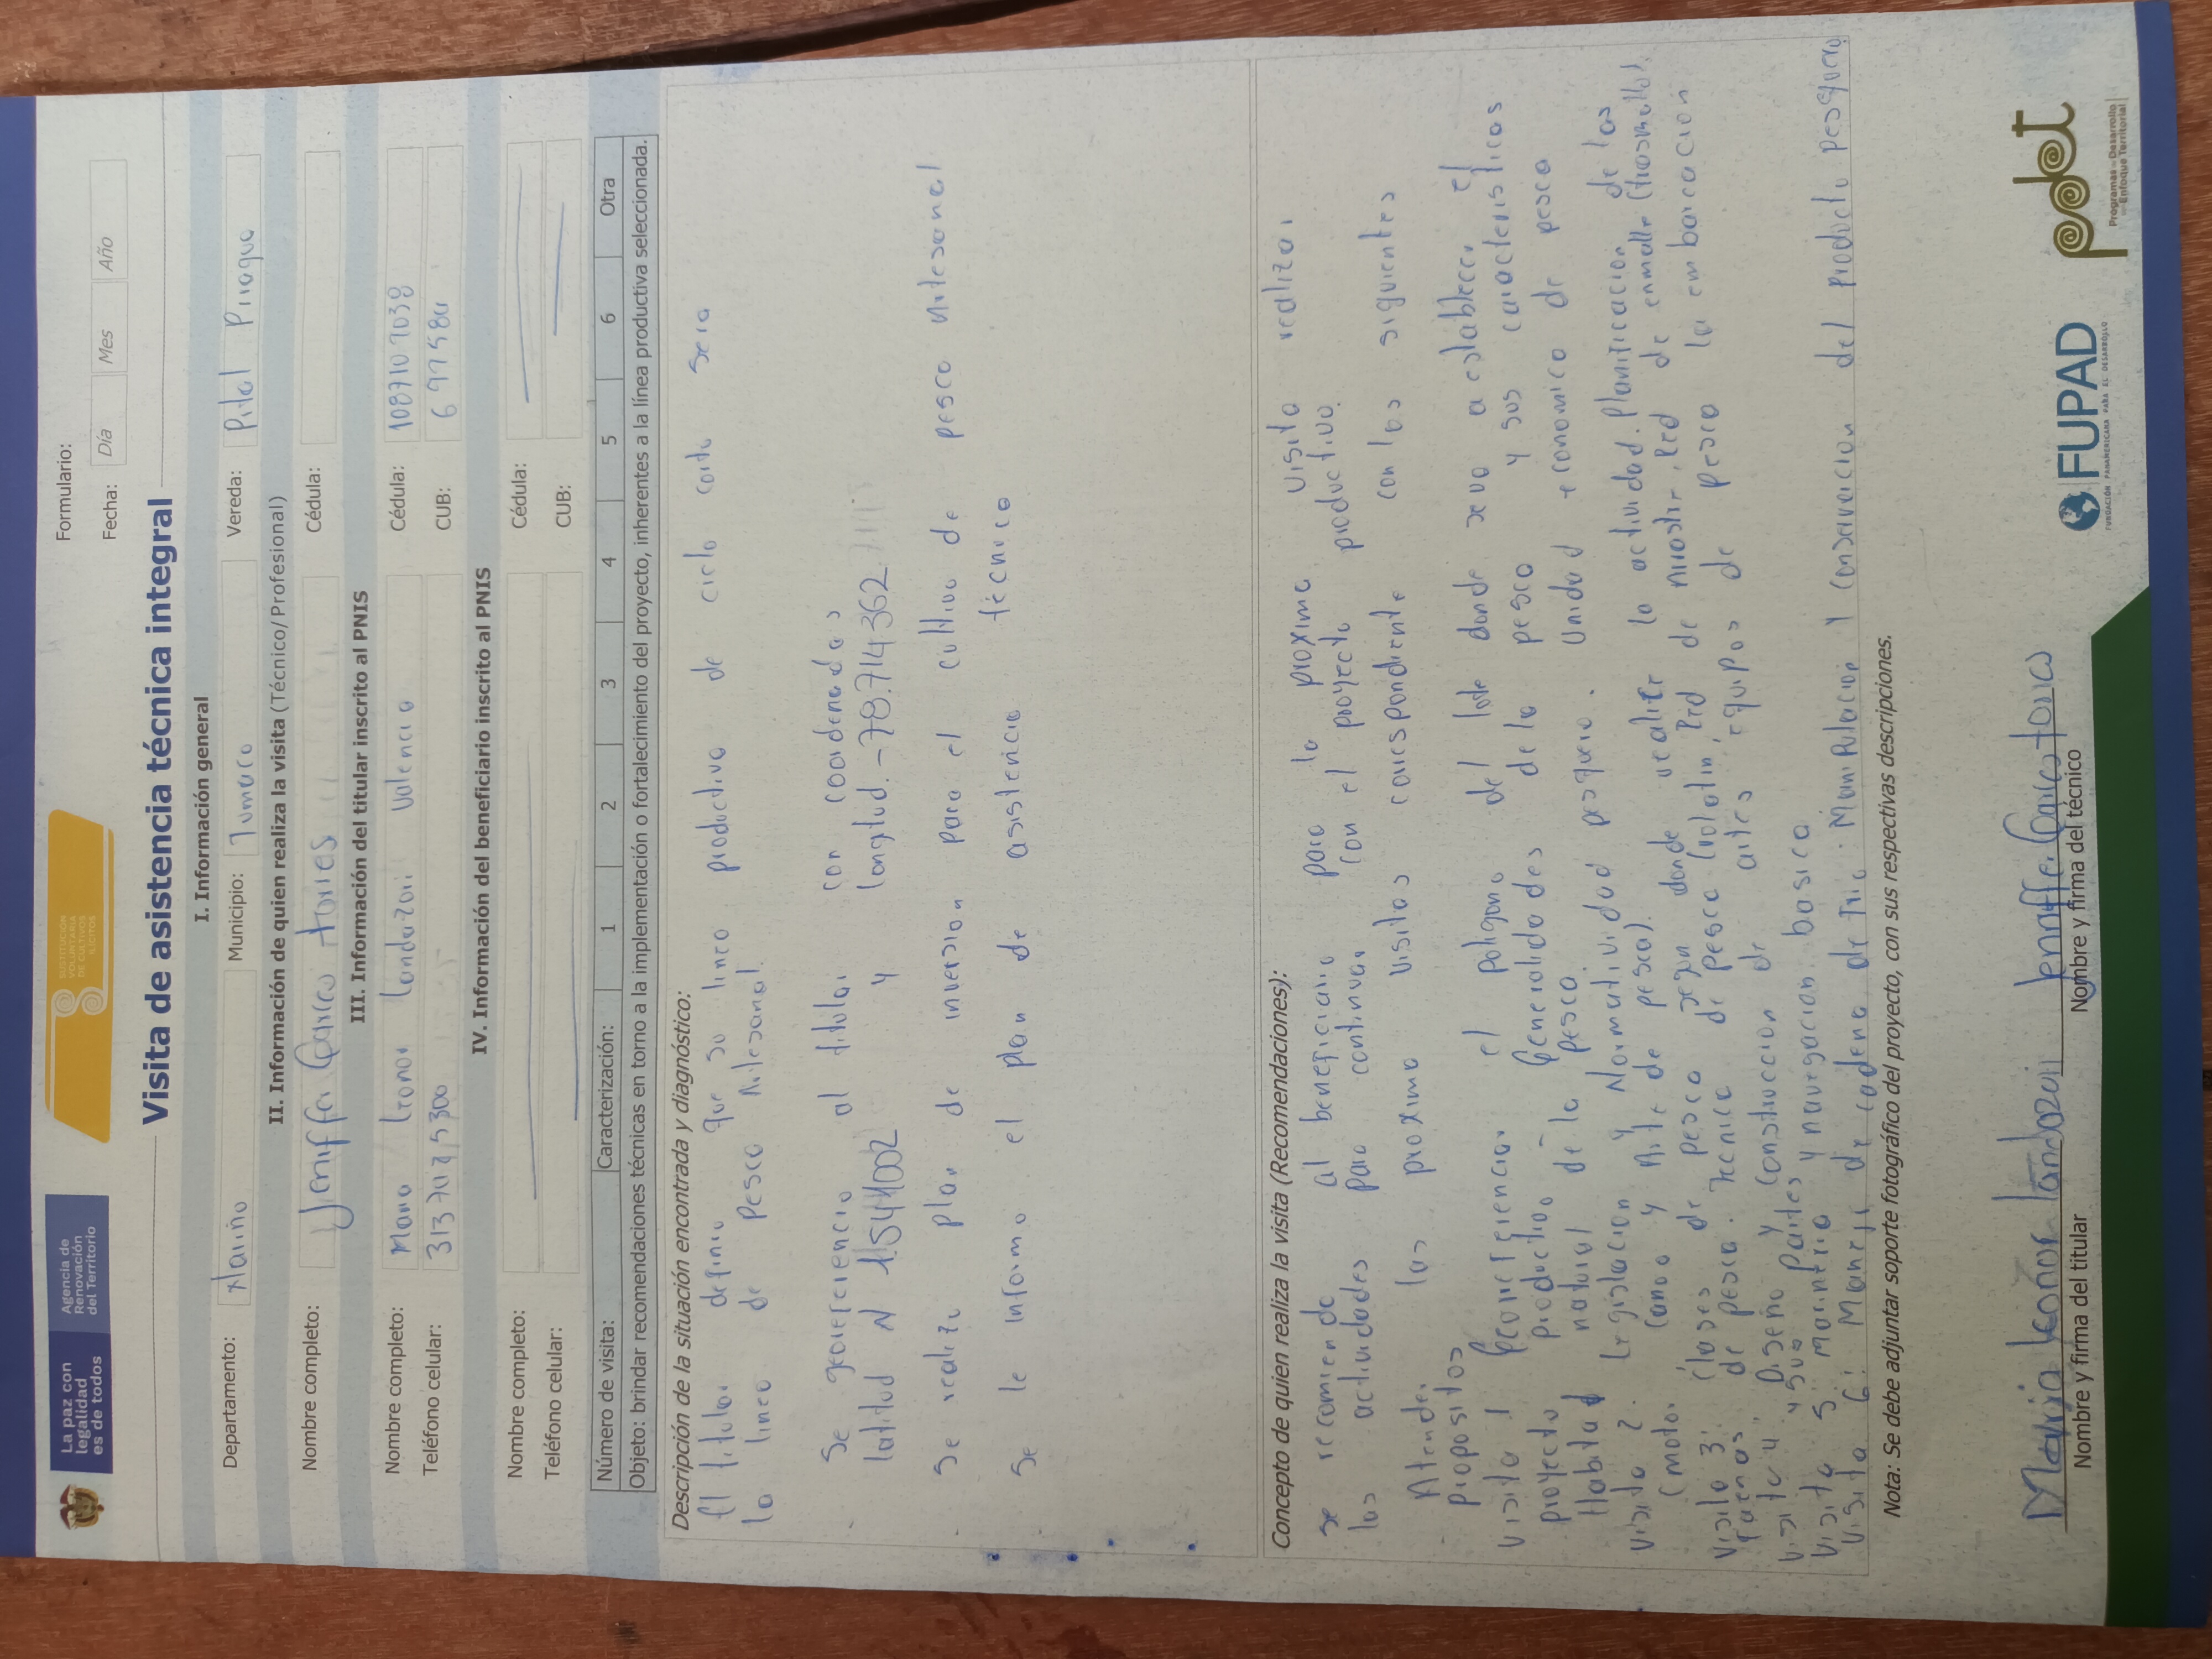 La paz con legalidad es de todos
Agencia de Renovación del Territorio
SUSTITUCIÓN VOLUNTARIA DE CULTIVOS ILÍCITOS
Formulario:
Fecha: Día Mes Año
Visita de asistencia técnica integral
I. Información general
Departamento: Nariño Municipio: Tumaco Vereda: Pital Piragua
II. Información de quien realiza la visita (Técnico/ Profesional)
Nombre completo: Jeniffer torres Cédula:
III. Información del titular inscrito al PNIS
Nombre completo: Maria Leonor Landazuri Valencia Cédula: 1087107038
Teléfono celular: CUB:
IV. Información del beneficiario inscrito al PNIS
Nombre completo: Cédula:
Teléfono celular: CUB:
Número de visita: Caracterización: 1 2 3 4 5 6 Otra
Objeto: brindar recomendaciones técnicas en torno a la implementación o fortalecimiento del proyecto, inherentes a la línea productiva seleccionada.
Descripción de la situación encontrada y diagnóstico:
El titular definio que su linea productiva de ciclo corto sera
la linea de pesca Artesanal.
. Se georeferencio al titular con coordenadas
latitud N 1.544002 y longitud. -78.714362
. Se realizo plan de inversion para el cultivo de pesca artesanal
. Se le informo el plan de asistencia técnica
Concepto de quien realiza la visita (Recomendaciones):
se recomienda al beneficiario para la proxima visita realizar
las actividades para continuar con el proyecto productivo.
. Atender las proxima visitas correspondiente con los siguientes
propositos
Visita 1 Georeferenciar el poligono del lote donde se va a establecer el
proyecto productivo - Generalidades de la pesca y sus caracteristicas
Habitad natural de la pesca Unidad economica de pesca
Visita 2. Legislacion y Normatividad pesquera. Planificacion de las
(motor Canoa y Arte de pesca).
Visita 3: Clases de pesca segun donde realice la actividad. Red de enmalle (trasmallo),
faenas de pesca. Tecnica de pesca (volatin, Red de arrastre,
Visita 4. Diseño y Construccion de artes, equipos de pesca la embarcacion
y sus partes
Visita 5: marineria y navegacion basica
Visita 6: Manejo de cadena de frio. Manipulacion y Conservacion del producto pesquero
Nota: Se debe adjuntar soporte fotográfico del proyecto, con sus respectivas descripciones.
Maria Leonor Landazuri
Nombre y firma del titular
Jeniffer torres
Nombre y firma del técnico
FUPAD
FUNDACIÓN PANAMERICANA PARA EL DESARROLLO
pdet
Programas de Desarrollo con Enfoque Territorial